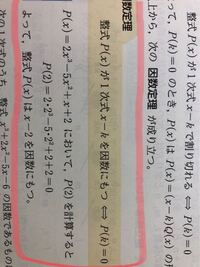 整式 P(x) が1次式 x−k で割り切れる ⇔ P(k)=0
って, P(k)=0 のとき, P(x) は P(x)=(x−k)Q(x) の形
上から, 次の 因数定理 が成り立つ。
数定理
整式 P(x) が1次式 x−k を因数にもつ ⇔ P(k)=0
P(x)=2x³−5x²+x+2 において, P(2) を計算すると
P(2)=2·2³−5·2²+2+2=0
よって, 整式 P(x) は x−2 を因数にもつ。
次の1次式のうち, 整式 x³+2x²−5x−6 の因数であるもの